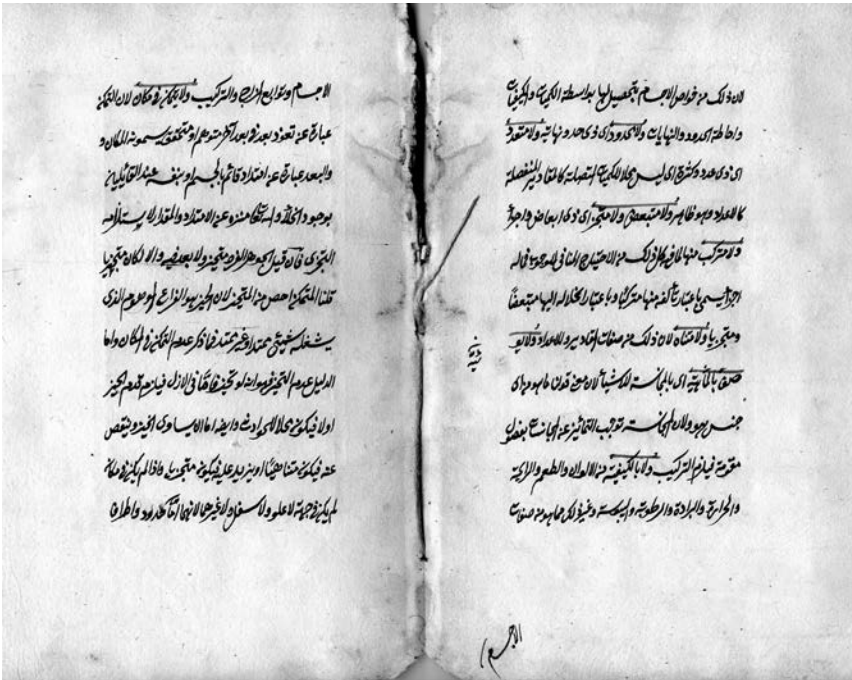 لان ذلك من خواص الاجسام يتحصيل لها بواسطة الكميات والكيفيات
واحاطة الحدود والنهايات ولا محدود اى ذى حد ونهاية ولا متعدد
اى ذى عدد وكثرة اى ليس محلا للكميات المتصلة كالمقادير المنفصلة
كالاعداد وهو ظاهر ولا متبعض ولا متجز اى ذى ابعاض واجزاء
ولا متركب منها لما فى كل ذلك من الاحتياج المنافى للوجوب فما له
اجزاء يسمى باعتبار تألفه منها متركبا وباعتبار انحلاله اليها متبعضا
ومتجزيا ولا متناه لان ذلك من صفات المقادير والاعداد ولا يو
صف بالماهية اى بالمجانسة للاشياء لان معنى قولنا ما هو من اى
جنس هو ولان المجانسة توجب التمايز عن المجانسات بفصول
مقومة فيلزم التركيب ولا بالكيفية من الالوان والطعم والرايحة
والحرارة والبرادة والرطوبة واليبسة وغير ذلك مما هو من صفات
الاجسام
الاجسام وتوابع المزاج والتركيب ولا يتمكن فى مكان لان التمكن
عبارة عن نفوذ بعد فى بعد آخر متوهم او متحقق يسمونه المكان و
والبعد عبارة عن امتداد قائم بالجسم او بنفسه عند القائلين
بوجود الخلاء والله تعالى منزه عن الامتداد والمقدار لاستلزامه
التجزى فان قيل الجوهر الفرد متحيز ولا بعد فيه والا لكان متجزيا
قلنا المتمكن اخص من المتحيز لان الحيز هو الفراغ الموهوم الذى
يشغله شيئى ممتد او غير ممتد فما ذكر عدم التمكن فى المكان واما
الدليل عدم التحيز فهو انه لو تحيز فاما فى الازل فيلزم قدم الحيز
اولا فيكون محلا للحوادث وايضا اما ان يساوى الحيز وينقص
عنه فيكون متناهيا او يزيد عليه فيكون متجزيا واذا لم يكن فى مكان
لم يكن فى جهة لا علو ولا سفل ولا غيرها لانها اما حدود واطراف